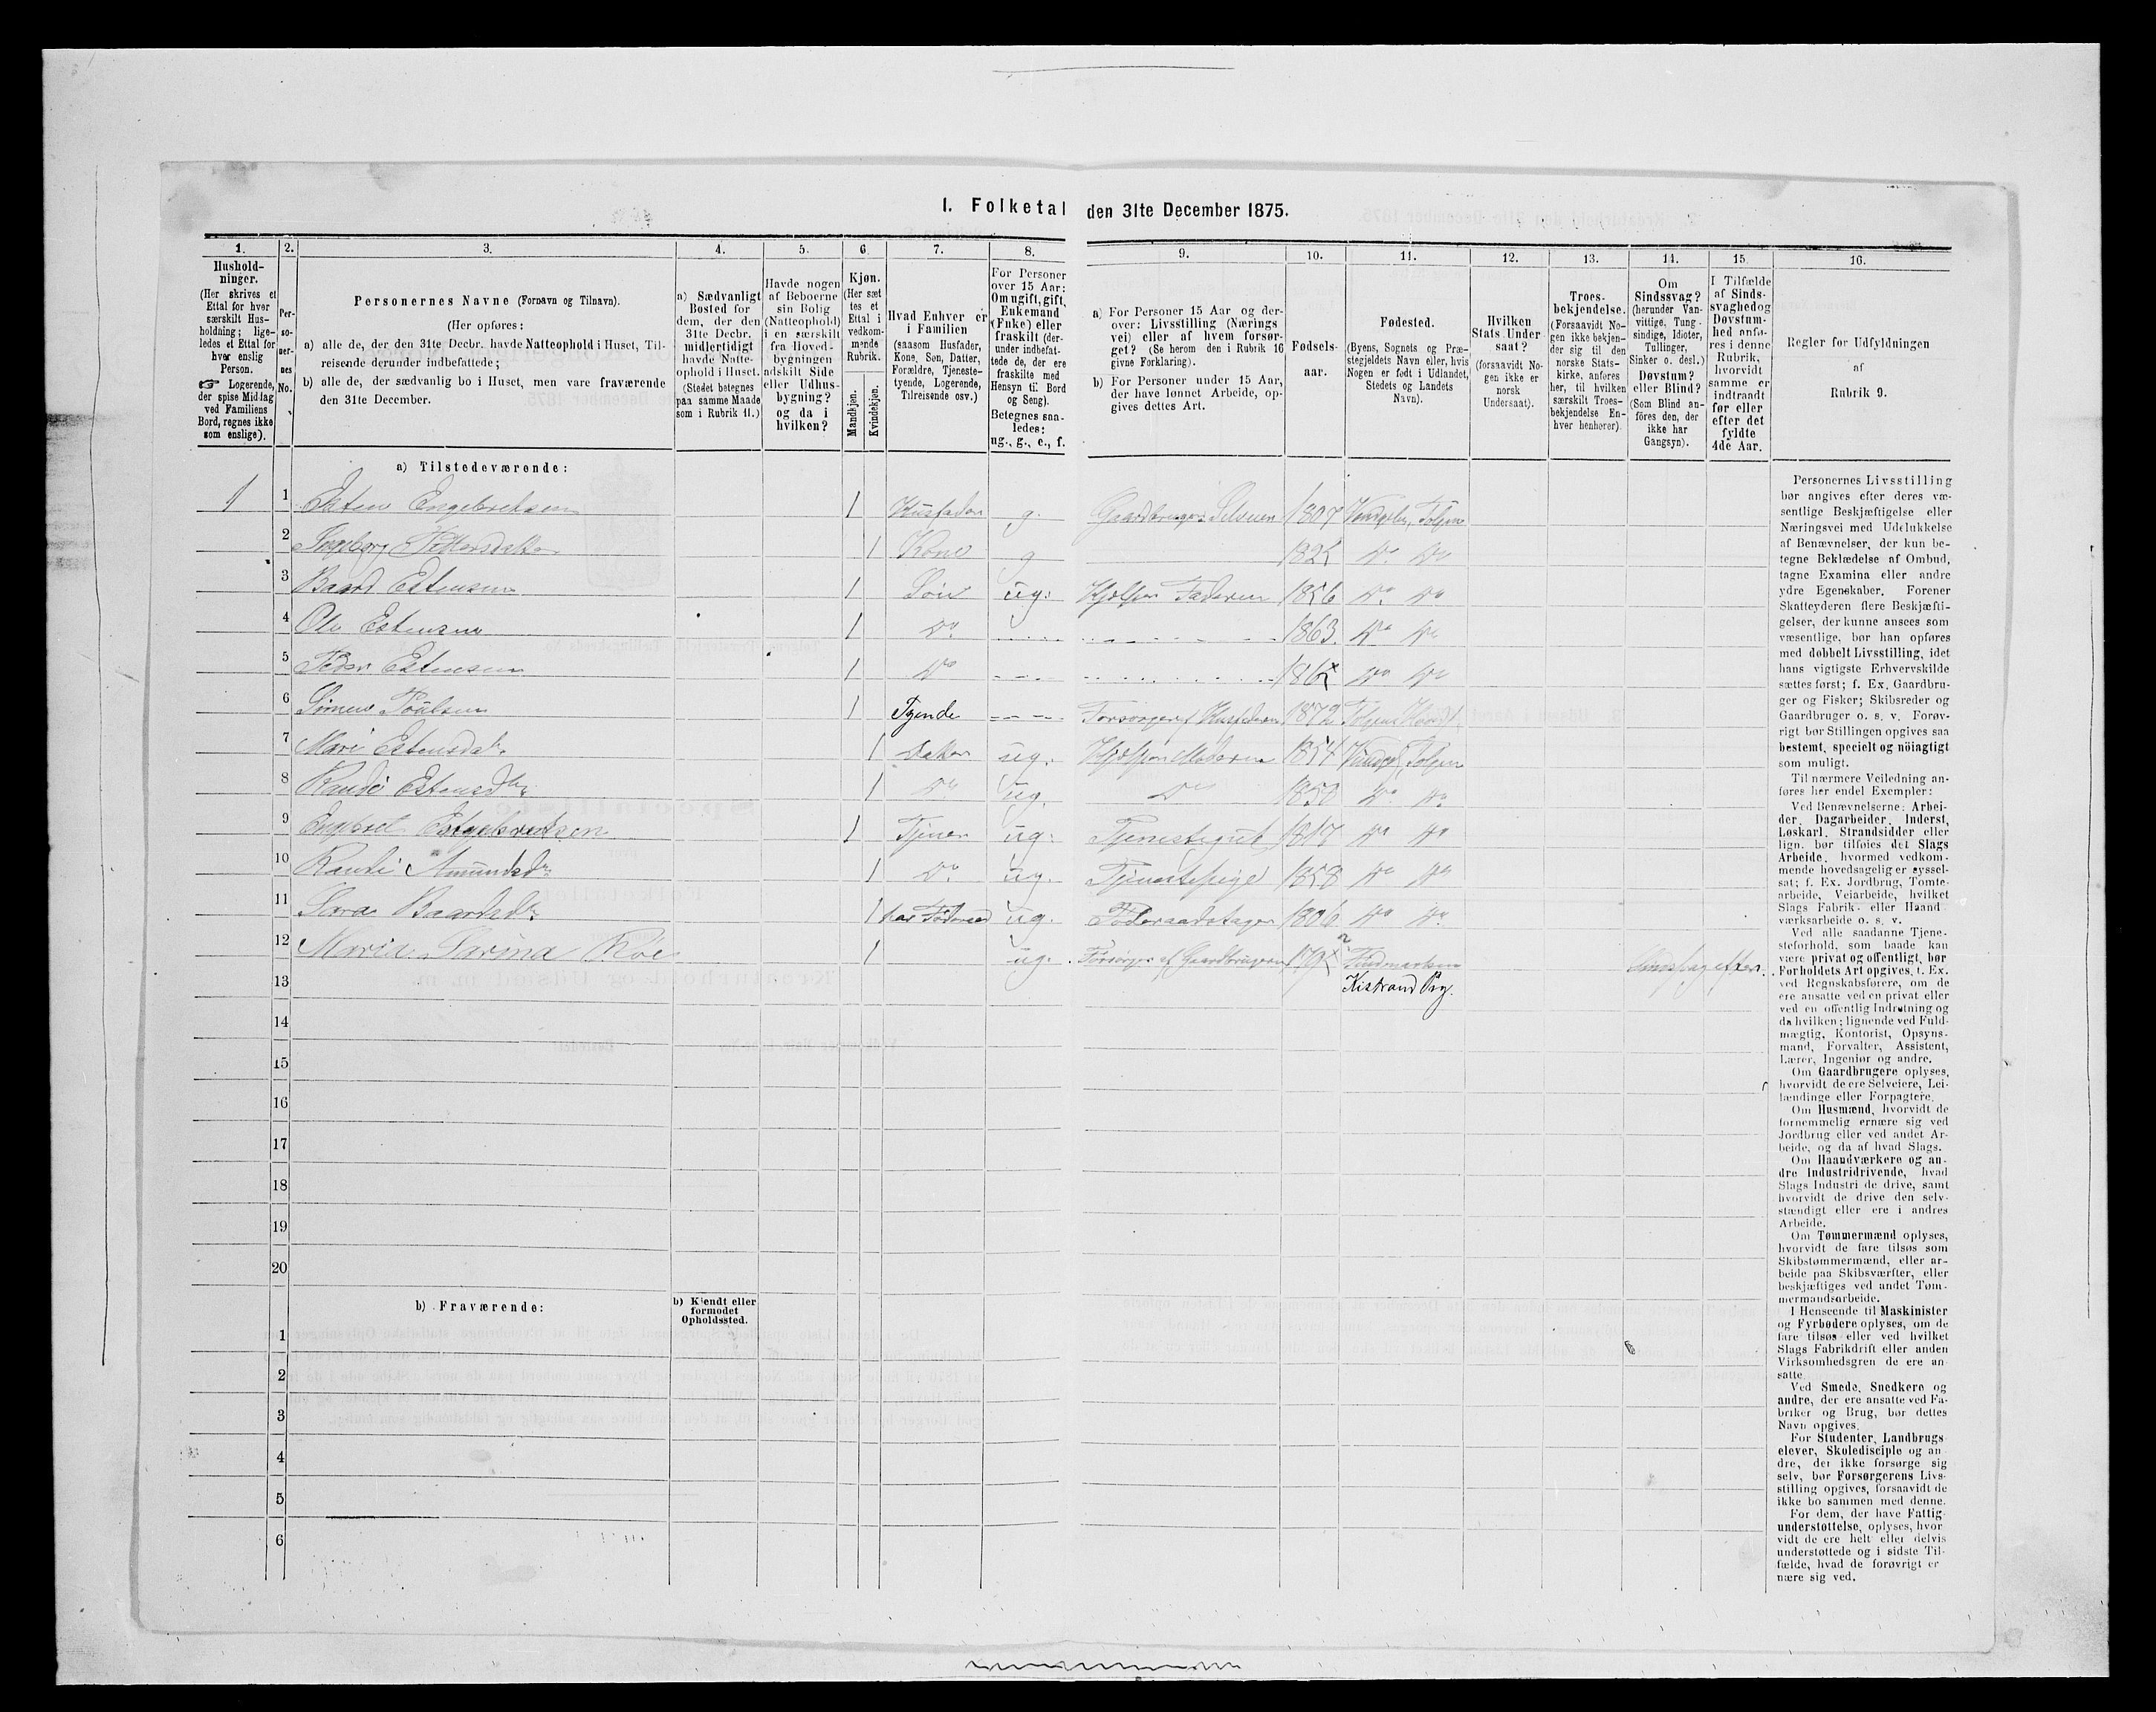 I. Folketal den 31te December 1875.
1.
Hushold-
ninger.
(Her skrives et
Ettal for hver
særskilt Hus-
holdning; lige-
ledes et Ettal for
hver enslig
Person.
☞ Logerende,
der spise Middag
ved Familiens
Bord, regnes ikke
som enslige).
2.
Per-
so-
ner-
nes
No.
3.
Personernes Navne (Fornavn og Tilnavn).
(Her opføres:
a) alle de, der den 31te Decbr. havde Natteophold i Huset, Til-
reisende derunder indbefattede;
b) alle de, der sædvanlig bo i Huset, men vare fraværende
den 31te December.
4.
a) Sædvanligt
Bosted for
dem, der den
31te Decbr.
midlertidigt
havde Natte-
ophold i Huset.
(Stedet betegnes
paa samme Maade
som i Rubrik 11.)
5.
Havde nogen
af Beboerne
sin Bolig
(Natteophold)
i en særskilt
fra Hoved-
bygningen
adskilt Side
eller Udhus-
bygning?
og da i
hvilken?
6.
Kjøn.
(Her sæt
tes et
Ettal i
vedkom-
mende
Rubrik.
Mandkjøn.
Kvindekjøn.
7.
Hvad Enhver er
i Familien
(saasom Husfader,
Kone, Søn, Datter,
Forældre, Tjeneste-
tyende, Logerende,
Tilreisende osv.)
8.
For Personer
over 15 Aar:
Om ugift, gift,
Enkemand
(Enke) eller
fraskilt (der-
under indbefat-
tede de, der ere
fraskilte med
Hensyn til Bord
og Seng).
Betegnes saa-
ledes:
ug., g., e., f.
9.
a) For Personer 15 Aar og der-
over: Livsstilling (Nærings
vei) eller af hvem forsør-
get? (Se herom den i Rubrik 16
givne Forklaring).
b) For Personer under 15 Aar,
der have lønnet Arbeide, op-
gives dettes Art.
10.
Fødsels-
aar.
11.
Fødested.
(Byens, Sognets og Præ-
stegjeldets Navn eller, hvis
Nogen er født i Udlandet,
Stedets og Landets
Navn).
12.
Hvilken
Stats Under
saat?
(forsaavidt No-
gen ikke er
norsk
Undersaat).
13.
Troes-
bekjendelse.
(Forsaavidt No-
gen ikke bekjen-
der sig til den
norske Stats-
kirke, anføres
her, til hvilken
særskilt Troes-
bekjendelse En-
hver henhører).
14.
Om
Sindssvag?
(herunder Van-
vittige, Tung-
sindige, Idioter,
Tullinger,
Sinker o. desl.)
Døvstum?
eller Blind?
(Som Blind an-
føres den, der
ikke har
Gangsyn).
15.
I Tilfælde
af Sinds-
svaghed og
Døvstum-
hed anfø-
res i denne
Rubrik,
hvorvidt
samme er
indtraadt
før eller
efter det
fyldte
4de Aar.
16.
Regler for Udfyldningen
af
Rubrik 9.
a) Tilstedeværende:
1 1 Esten Engebretsen 1 Husfader g. Gaardbruger, Selveier 1807 Tolgen
2 Ingeborg 1 Kone g 182 Do Do
3 Baard Estensen 1 Søn ug: Hjelper Faderen 1856 Do Do
4 Ole Estensen 1 Do 1863 Do Do
5 Peder Estensen 1 Do 186 Do Do
6 1 Tyende Forsørges af Husfaderen 1872 Tolgen
7 Mari Estensdr 1 Datter ug. Hjelper Moderen 1854 Tolgen
8 Randi Estensdr 1 Do ug. Do 1850 Do Do
9 Engebret Engebretsen 1 Tjener ug: Tjenestegut 1817 Do Do
10 Randi Amundsdr 1 Do ug. Tjenestepige 1858 Do Do
11 Sara Baardsdr 1 har Føderaad ug. Føderaadstager 1806 Do Do
12 Maria Sarina Röe 1 ug. Forsørges af Gaardbrugeren 179 Findmarken Sindssvag efter.
13 Kistrand Prg.
14
15
16
17
18
19
20
b) Fraværende:
b) Kjendt eller
formodet
Opholdssted.
1
2
3
4
5
6
Personernes Livsstilling
bør angives efter deres væ-
sentlige Beskjæftigelse eller
Næringsvei med Udelukkelse
af Benævnelser, der kun be-
tegne Beklædelse af Ombud,
tagne Examina eller andre
ydre Egenskaber. Forener
Skatteyderen flere Beskjæfti-
gelser, der kunne ansees som
væsentlige, bør han opføres
med dobbelt Livsstilling, idet
hans vigtigste Erhvervskilde
sættes først; f. Ex. Gaardbru-
ger og Fisker; Skibsreder og
Gaardbruger o. s. v. Forøv-
rigt bør Stillingen opgives saa
bestemt, specielt og nöiagtigt
som muligt.
Til nærmere Veiledning an-
føres her endel Exempler:
Ved Benævnelserne: Arbei-
der, Dagarbeider, Inderst,
Løskarl, Strandsidder eller
lign. bør tilføies det Slags
Arbeide, hvormed vedkom-
mende hovedsagelig er syssel-
sat; f. Ex. Jordbrug, Tomte-
arbeide, Veiarbeide, hvilket
Slags Fabrik- eller Haand-
værksarbeide o. s. v.
Ved alle saadanne Tjene-
steforhold, som baade kan
være privat og offentligt, bør
Forholdets Art opgives, t. Ex.
ved Regnskabsførere, om de
ere ansatte ved en privat eller
ved en offentlig Indretning og
da hvilken; lignende ved Fuld-
mægtig, Kontorist, Opsyns-
mand, Forvalter, Assistent,
Lærer, Ingeniør og andre.
Om Gaardbrugere oplyses,
hvorvidt de ere Selveiere, Lei-
lændinge eller Forpagtere.
Om Husmænd, hvorvidt de
fornemmelig ernære sig ved
Jordbrug eller ved andet Ar-
beide, og da af hvad Slags.
Om Haandværkere og an-
dre Industridrivende, hvad
Slags Industri de drive, samt
hvorvidt de drive den selv-
stændigt eller ere i andres
Arbeide.
Om Tømmermænd oplyses,
hvorvidt de fare tilsøs som
Skibstømmermænd, eller ar-
beide paa Skibsværfter, eller
beskjæftiges ved andet Tøm-
mermandsarbeide.
I Henseende til Maskinister
og Fyrbødere oplyses, om de
fare tilsøs eller ved hvilket
Slags Fabrikdrift eller anden
Virksomhedsgren de ere an-
satte.
Ved Smede, Snedkere og
andre, der ere ansatte ved Fa-
briker og Brug, bør dettes
Navn opgives.
For Studenter, Landbrugs
elever, Skoledisciple og an
dre, der ikke forsørge sig
selv, bør Forsørgerens Livs-
stilling opgives, forsaavidt de
ikke bo sammen med denne.
For dem, der have Fattig-
understøttelse, oplyses, hvor
vidt de ere helt eller delvis
understøttede og i sidste Til-
fælde, hvad de forøvrigt er
nære sig ved.